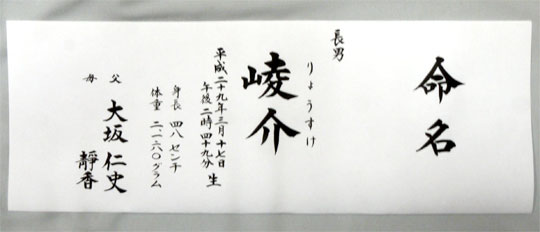 命名
長男
りょうすけ
崚介
平成二十九年三月十七日
午後二時四十九分 生
身長 四八センチ
体重 二、一六〇グラム
父 大坂 仁史
母 靜香